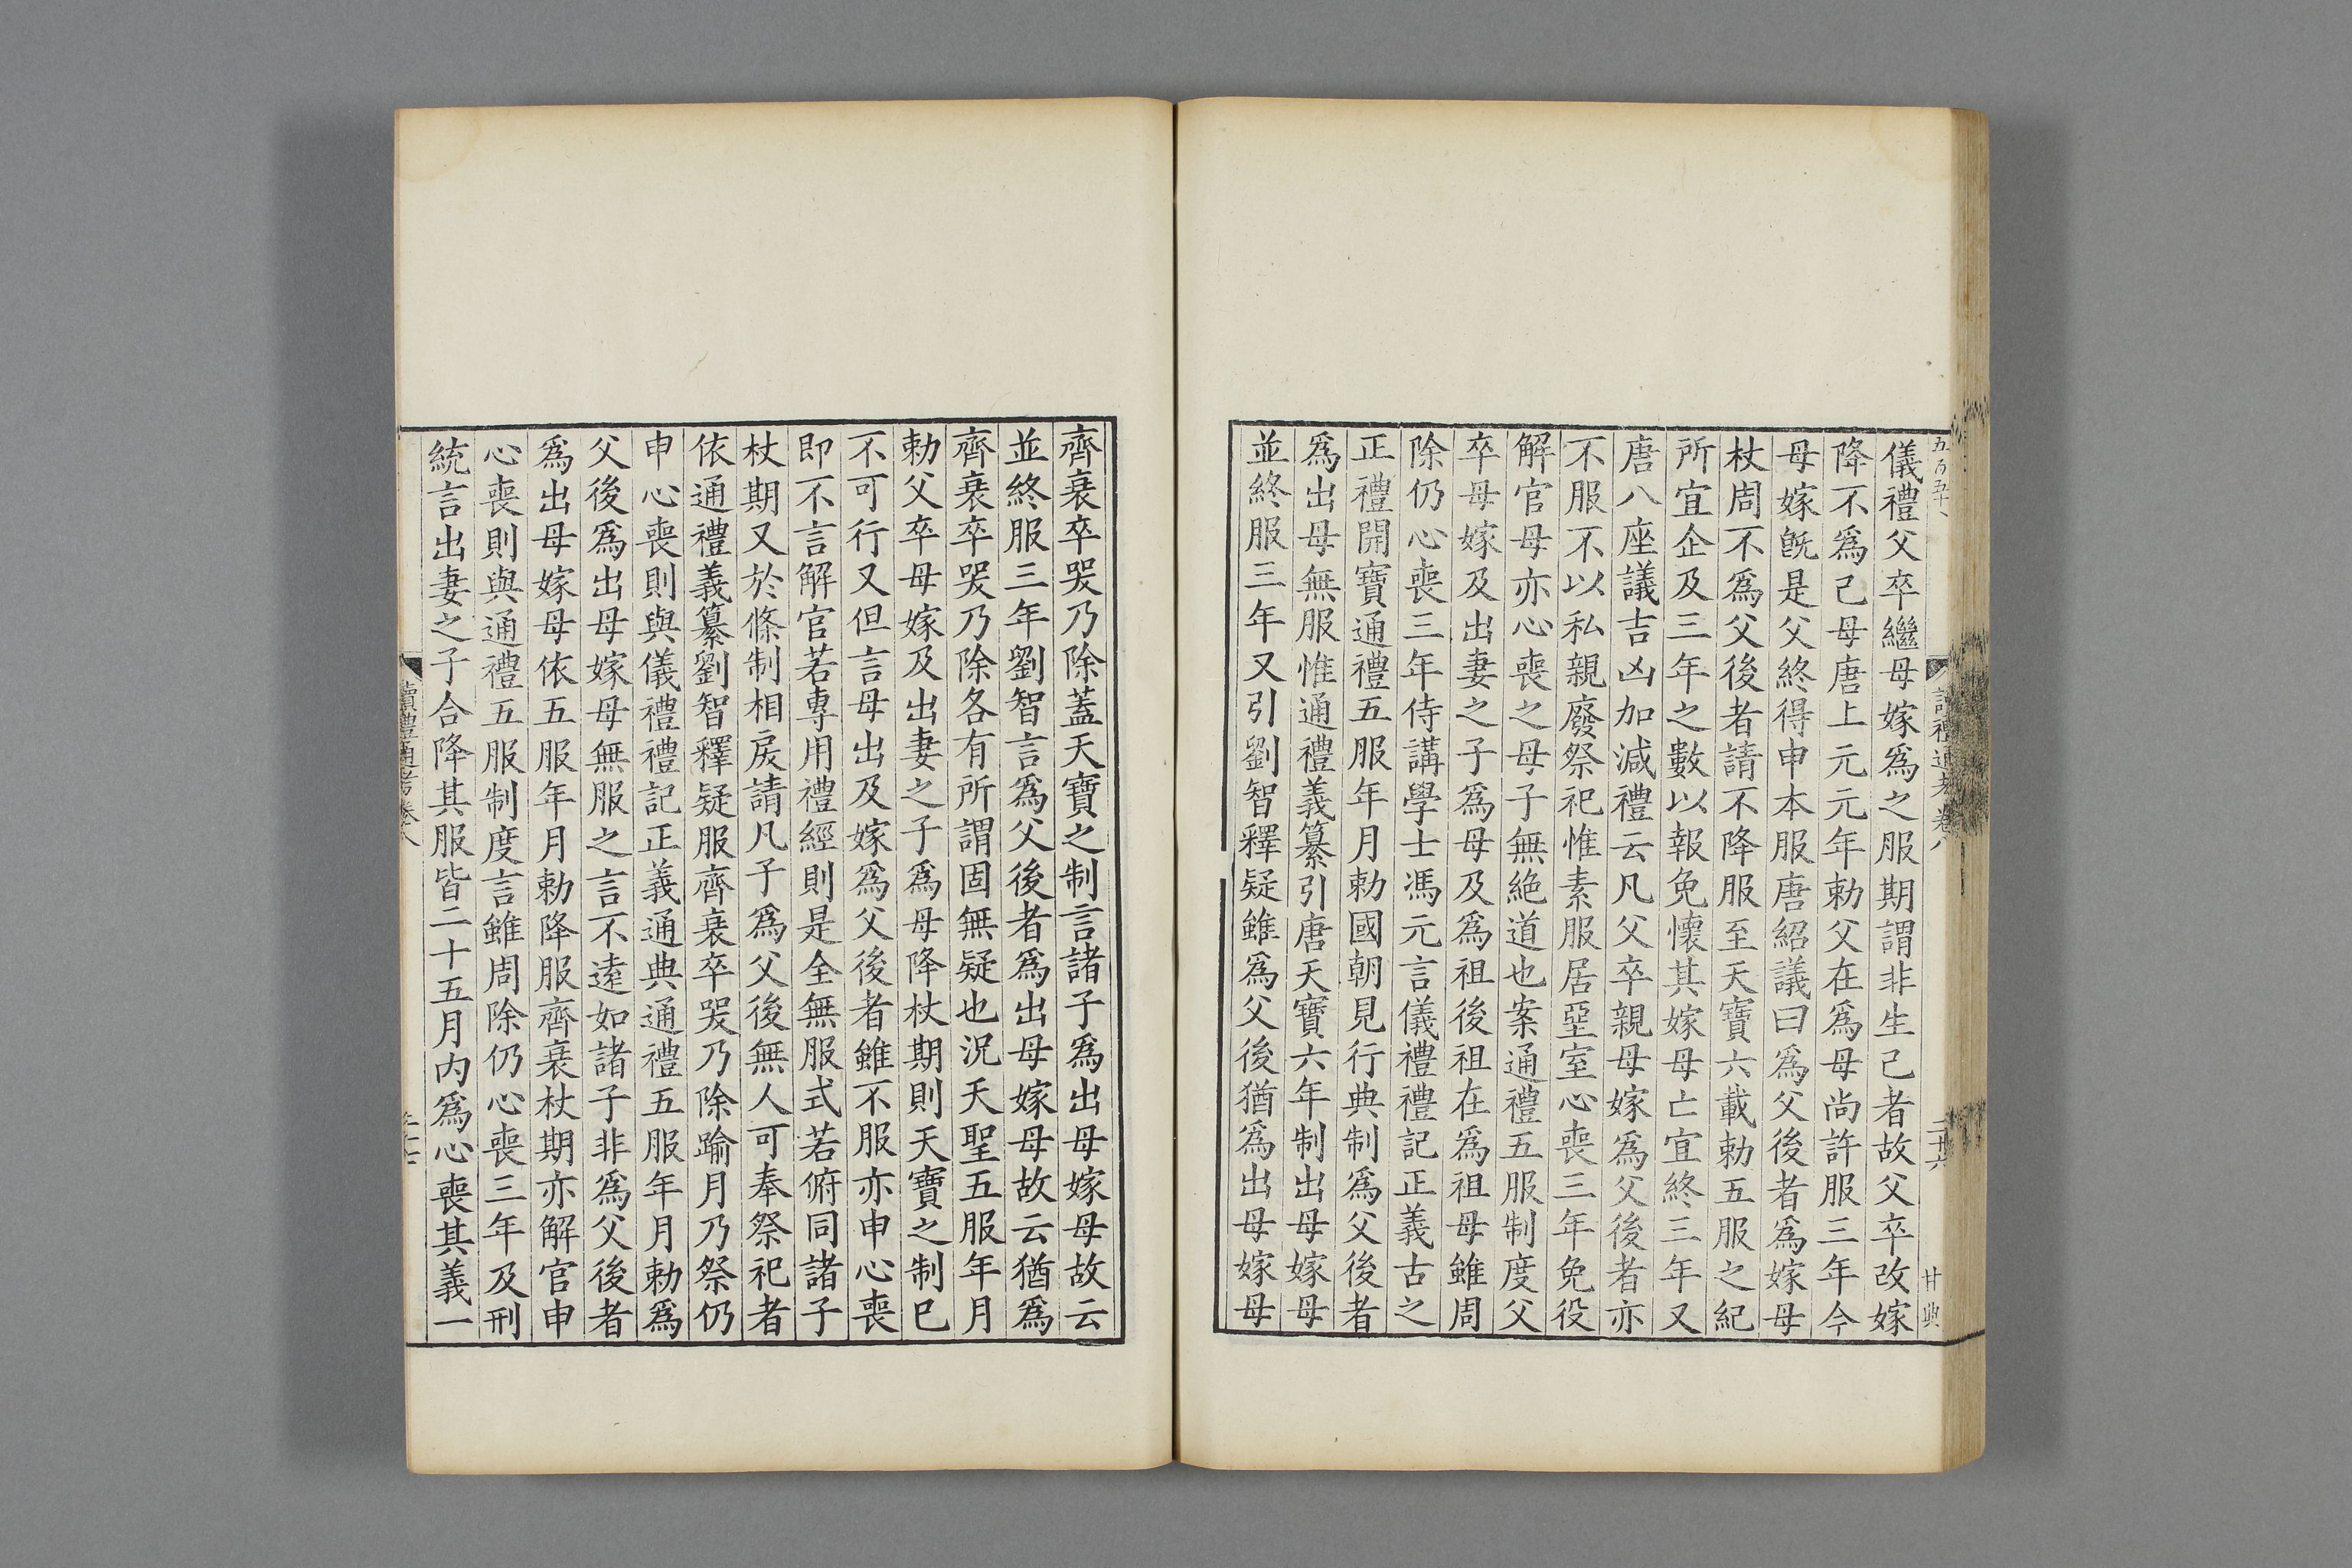 儀禮父卒繼母嫁爲之服期謂非生己者故父卒改嫁
降不爲己母唐上元元年勅父在爲母尚許服三年今
母嫁旣是父終得申本服唐紹議曰爲父後者爲嫁母
杖周不爲父後者請不降服至天寶六載勅五服之紀
所宜企及三年之數以報免懷其嫁母亡宜終三年又
唐八座議吉凶加減禮云凡父卒親母嫁爲父後者亦
不服不以私親廢祭祀惟素服居堊室心喪三年免役
解官母亦心喪之母子無絶道也案通禮五服制度父
卒母嫁及出妻之子爲母及爲祖後祖在爲祖母雖周
除仍心喪三年侍講學士馮元言儀禮禮記正義古之
正禮開寶通禮五服年月勅國朝見行典制爲父後者
爲出母無服惟通禮義纂引唐天寶六年制出母嫁母
並終服三年又引劉智釋疑雖爲父後猶爲出母嫁母
齊衰卒哭乃除蓋天寶之制言諸子爲出母嫁母故云
並終服三年劉智言爲父後者爲出母嫁母故云猶爲
齊衰卒哭乃除各有所謂固無疑也況天聖五服年月
勅父卒母嫁及出妻之子爲母降杖期則天寶之制已
不可行又但言母出及嫁爲父後者雖不服亦申心喪
即不言解官若專用禮經則是全無服式若俯同諸子
杖期又於條制相戾請凡子爲父後無人可奉祭祀者
依通禮義纂劉智釋疑服齊衰卒哭乃除踰月乃祭仍
申心喪則與儀禮禮記正義通典通禮五服年月勅爲
父後爲出母嫁母無服之言不遠如諸子非爲父後者
爲出母嫁母依五服年月勅降服齊衰杖期亦解官申
心喪則與通禮五服制度言雖周除仍心喪三年及刑
統言出妻之子合降其服皆二十五月内爲心喪其義一
讀禮通考卷八